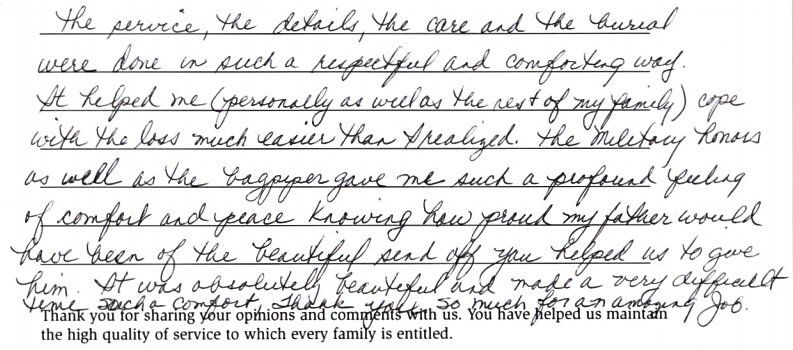 The service, the details, the care and the burial
were done in such a respectful and comforting way.
It helped me (personally as well as the rest of my family) cope
with the loss much easier than I realized. The Military Honors
as well as the bagpiper gave me such a profound feeling
of comfort and peace knowing how proud my father would
have been of the beautiful send off you helped us to give
him. It was absolutely beautiful and made a very difficult
time such a comfort, thank you so much for an amazing job.
Thank you for sharing your opinions and comments with us. You have helped us maintain
the high quality of service to which every family is entitled.